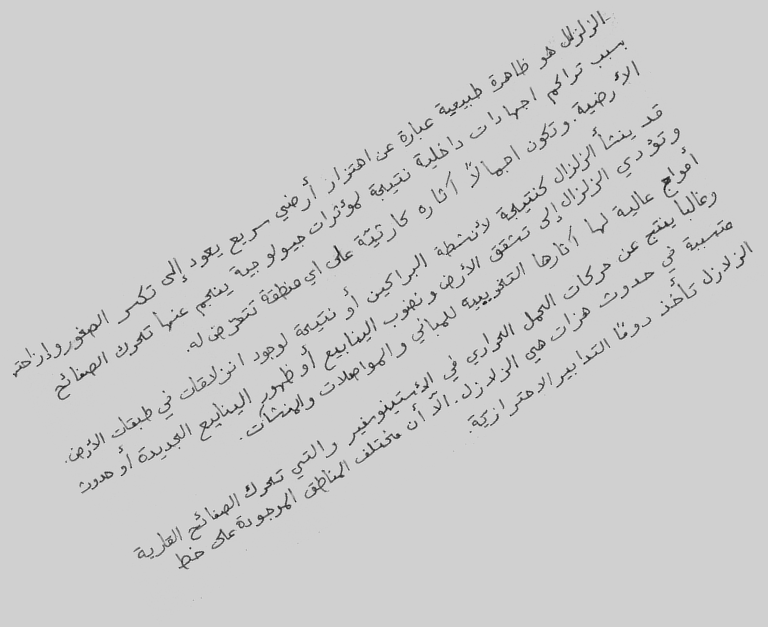 الزلزال هو ظاهرة طبيعية عبارة عن اهتزاز أرضي سريع يعود إلى تكسر الصخور وإزاحتها
بسبب تراكم اجهادات داخلية نتيجة لمؤثرات جيولوجية ينجم عنها تحرك الصفائح
الأرضية. وتكون اجمالاً آثاره كارثيّة على اي منطقة تتعرّض له.
قد ينشأ الزلزال كنتيجة لأنشطة البراكين أو نتيجة لوجود انزلاقات في طبقات الأرض.
وتؤدي الزلازل إلى تشقق الأرض ونضوب الينابيع أو ظهور الينابيع الجديدة أو حدوث
أمواج عالية لها آثارها التخريبية للمباني والمواصلات والمنشآت.
وغالبا ينتج عن حركات الحمل الحراري في الأستينوسفير والتي تحرك الصفائح القارية
متسببة في حدوث هزات هي الزلازل. الّا أن مختلف المناطق الموجودة على خط
الزلازل تأخذ دومًا التدابير الاحترازيّة.